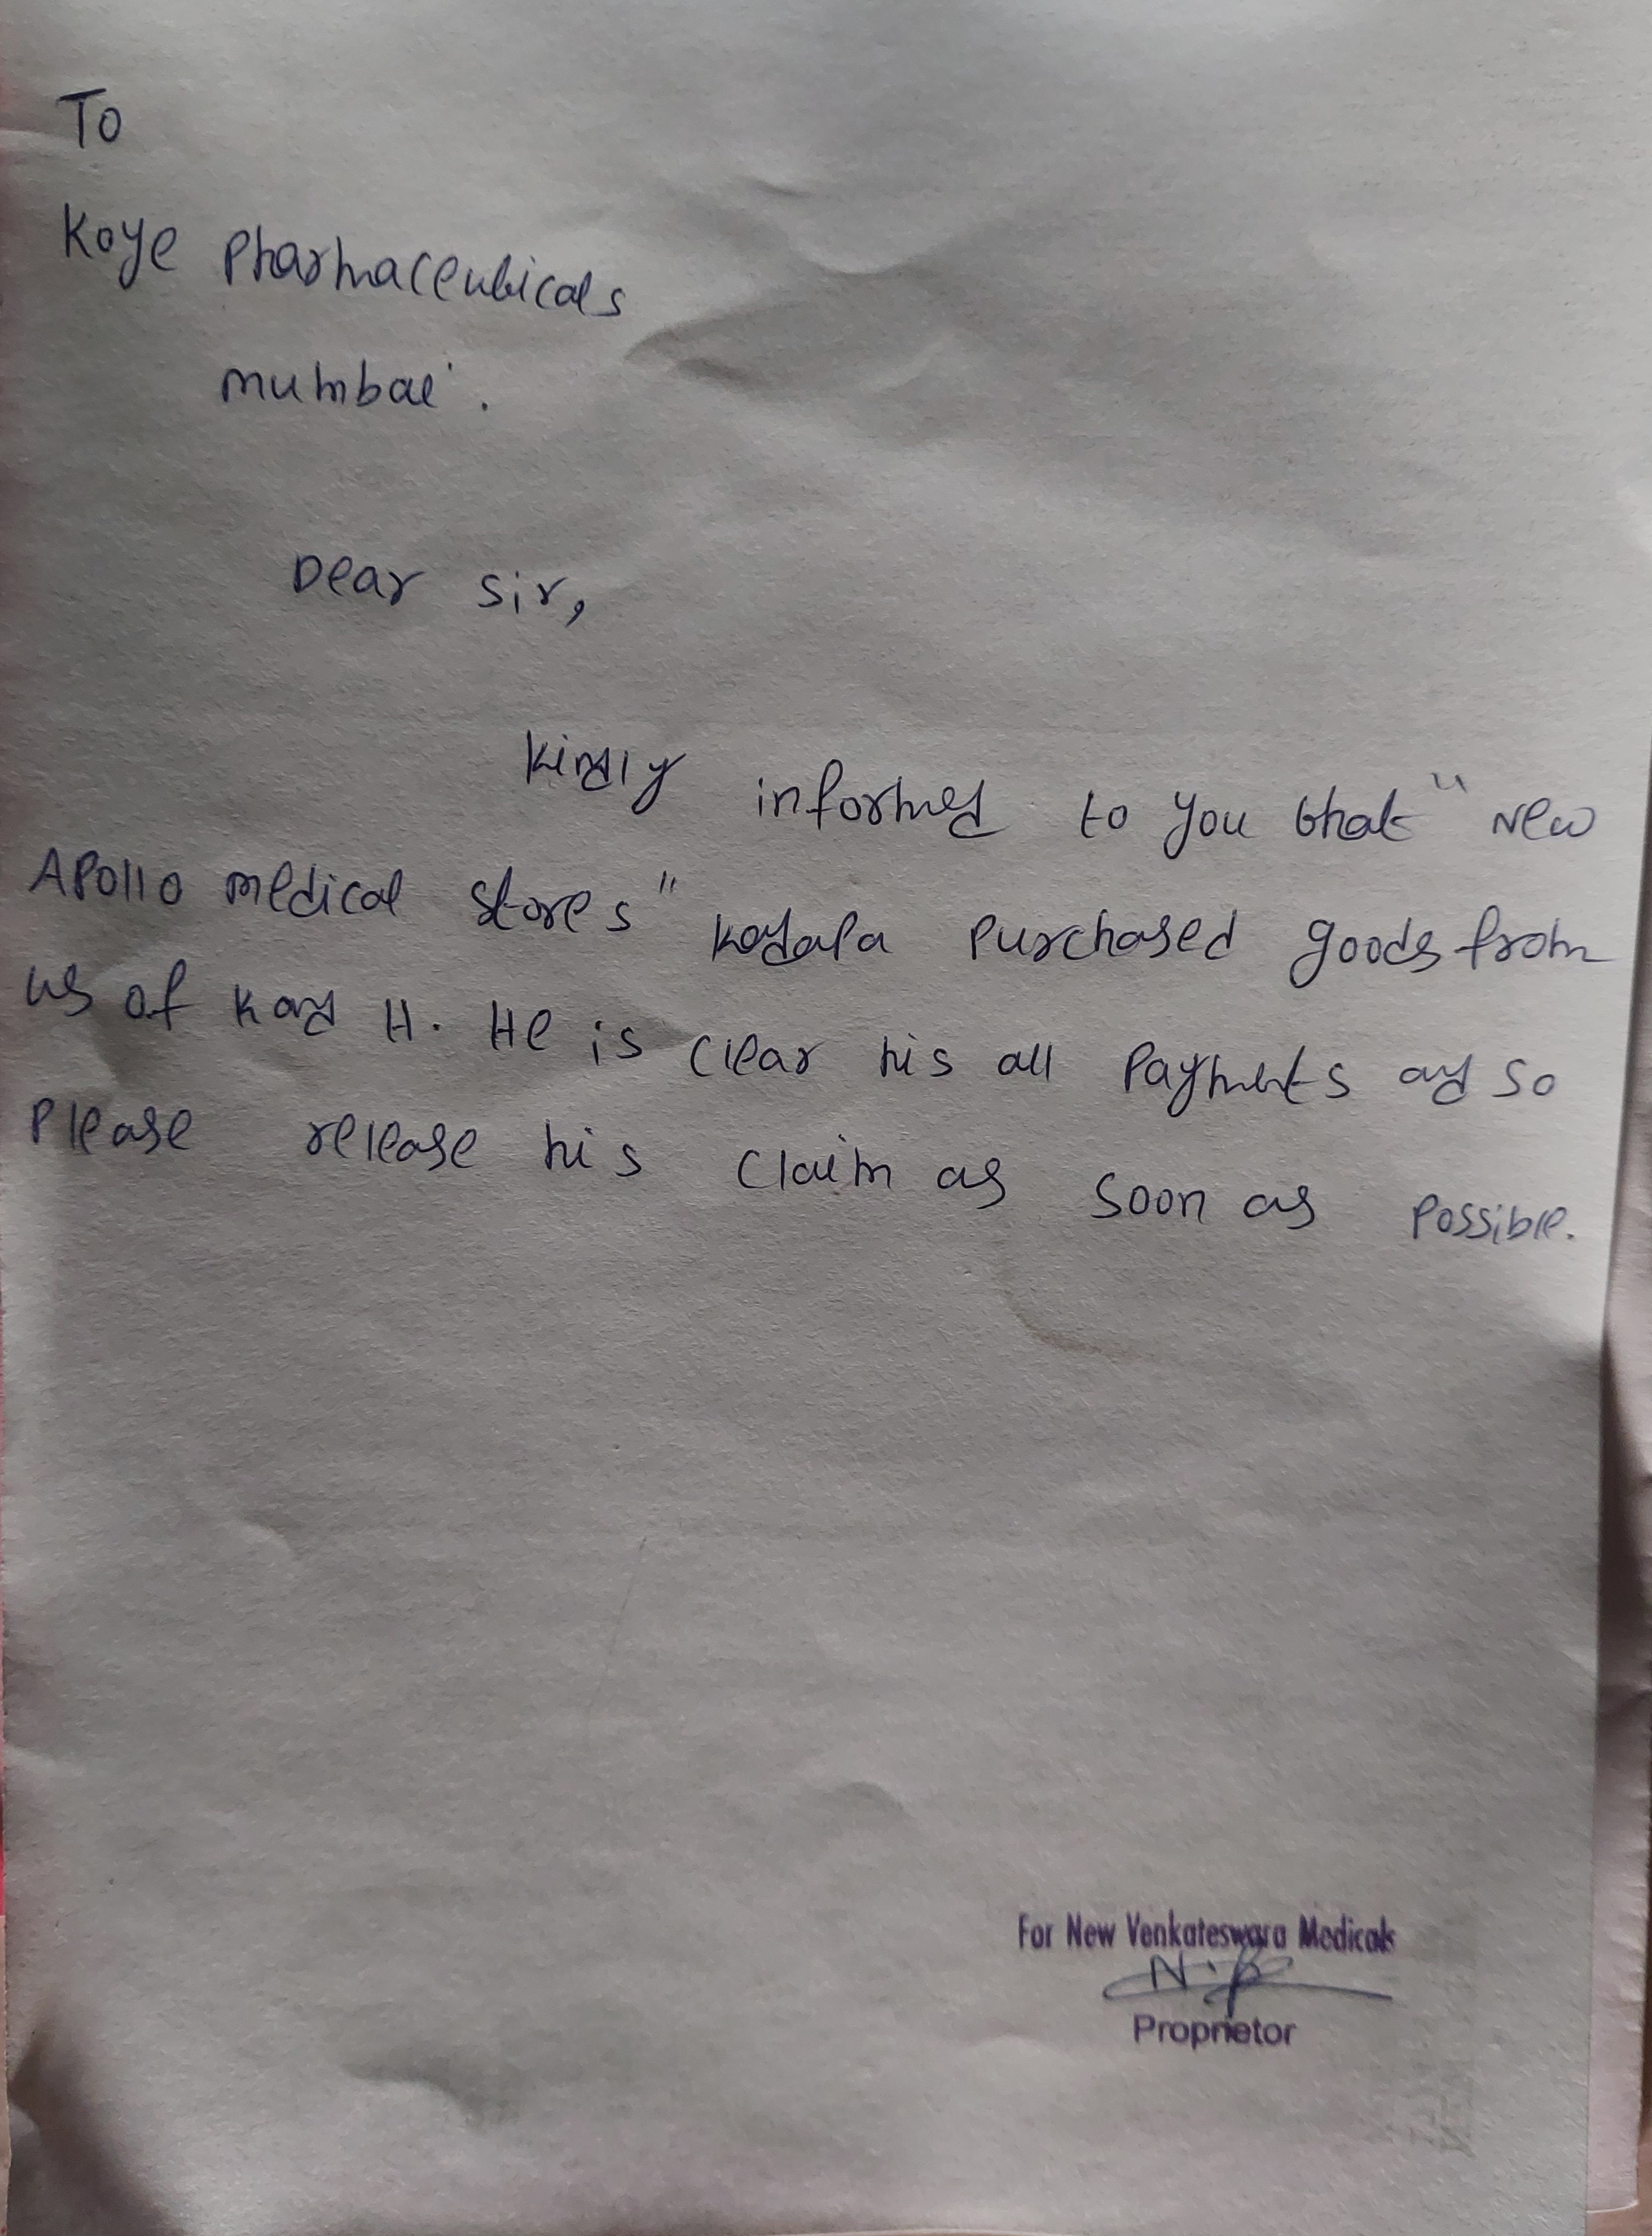 To
Koye Pharmaceuticals
mumbai.
Dear Sir,
Kindly informed to you that " New
Apollo medical stores " Kadapa purchased goods from
us of Kand H. He is clear his all Payments and so
Please release his claim as soon as possible.
For New Venkateswara Medicals
Proprietor